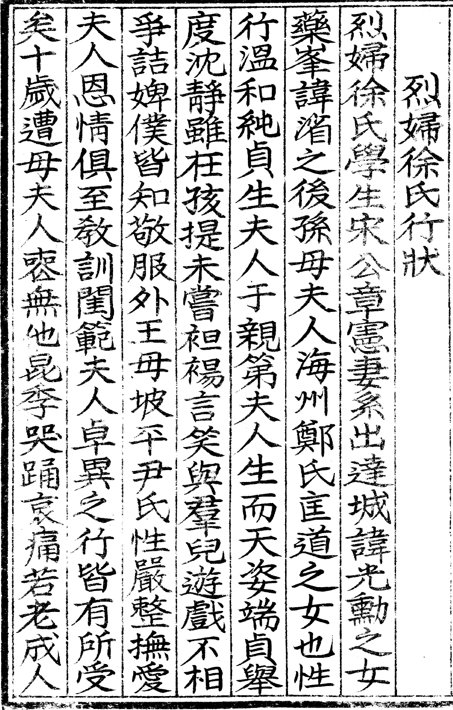 烈婦徐氏行狀
烈婦徐氏學生宋公章憲妻系出達城諱光勳之女
藥峯諱渻之後孫母夫人海州鄭氏匡道之女也性
行溫和純貞生夫人于親第夫人生而天姿端貞擧
度沈静雖在孩提未嘗袒裼言笑與羣兒遊戲不相
爭詰婢僕皆知敬服外王母坡平尹氏性嚴整撫愛
夫人恩情俱至敎訓閨範夫人卓異之行皆有所受
矣十歲遭母夫人喪無他昆季哭踊哀痛若老成人